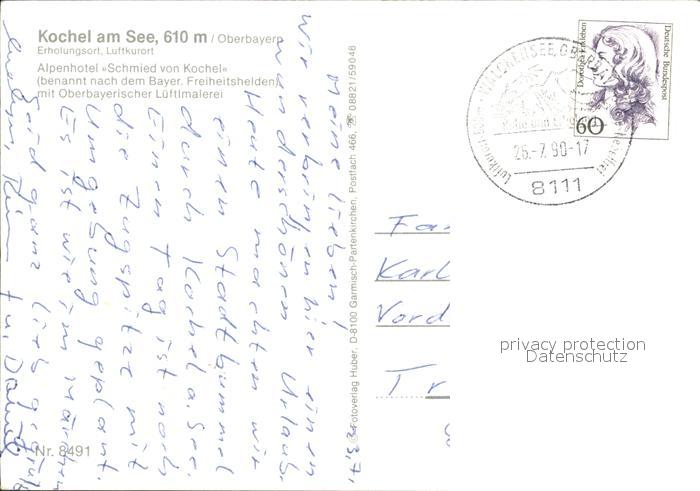 Kochel am See, 610 m / Oberbayern
Erholungsort, Luftkurort
Alpenhotel »Schmied von Kochel«
(benannt nach dem Bayer. Freiheitshelden)
mit Oberbayerischer Lüftlmalerei
Deutsche Bundespost
Dorothea Erxleben
60
26.-7.90-17
8111
23.7.
Meine Lieben!
Wir verbringen hier einen
wunderschönen Urlaub.
Heute machten wir
einen Stadtbummel
durch Kochel a. See.
Einen Tag ist noch
die Zugspitze mit
Umgebung geplant.
Es ist wie im Märchen
Seid ganz lieb gegrüßt
© Fotoverlag Huber, D-8100 Garmisch-Partenkirchen, Postfach 466, ☎ 08821/59048
Fa
Karl
Vord
Tr
privacy protection
Datenschutz
Nr. 8491